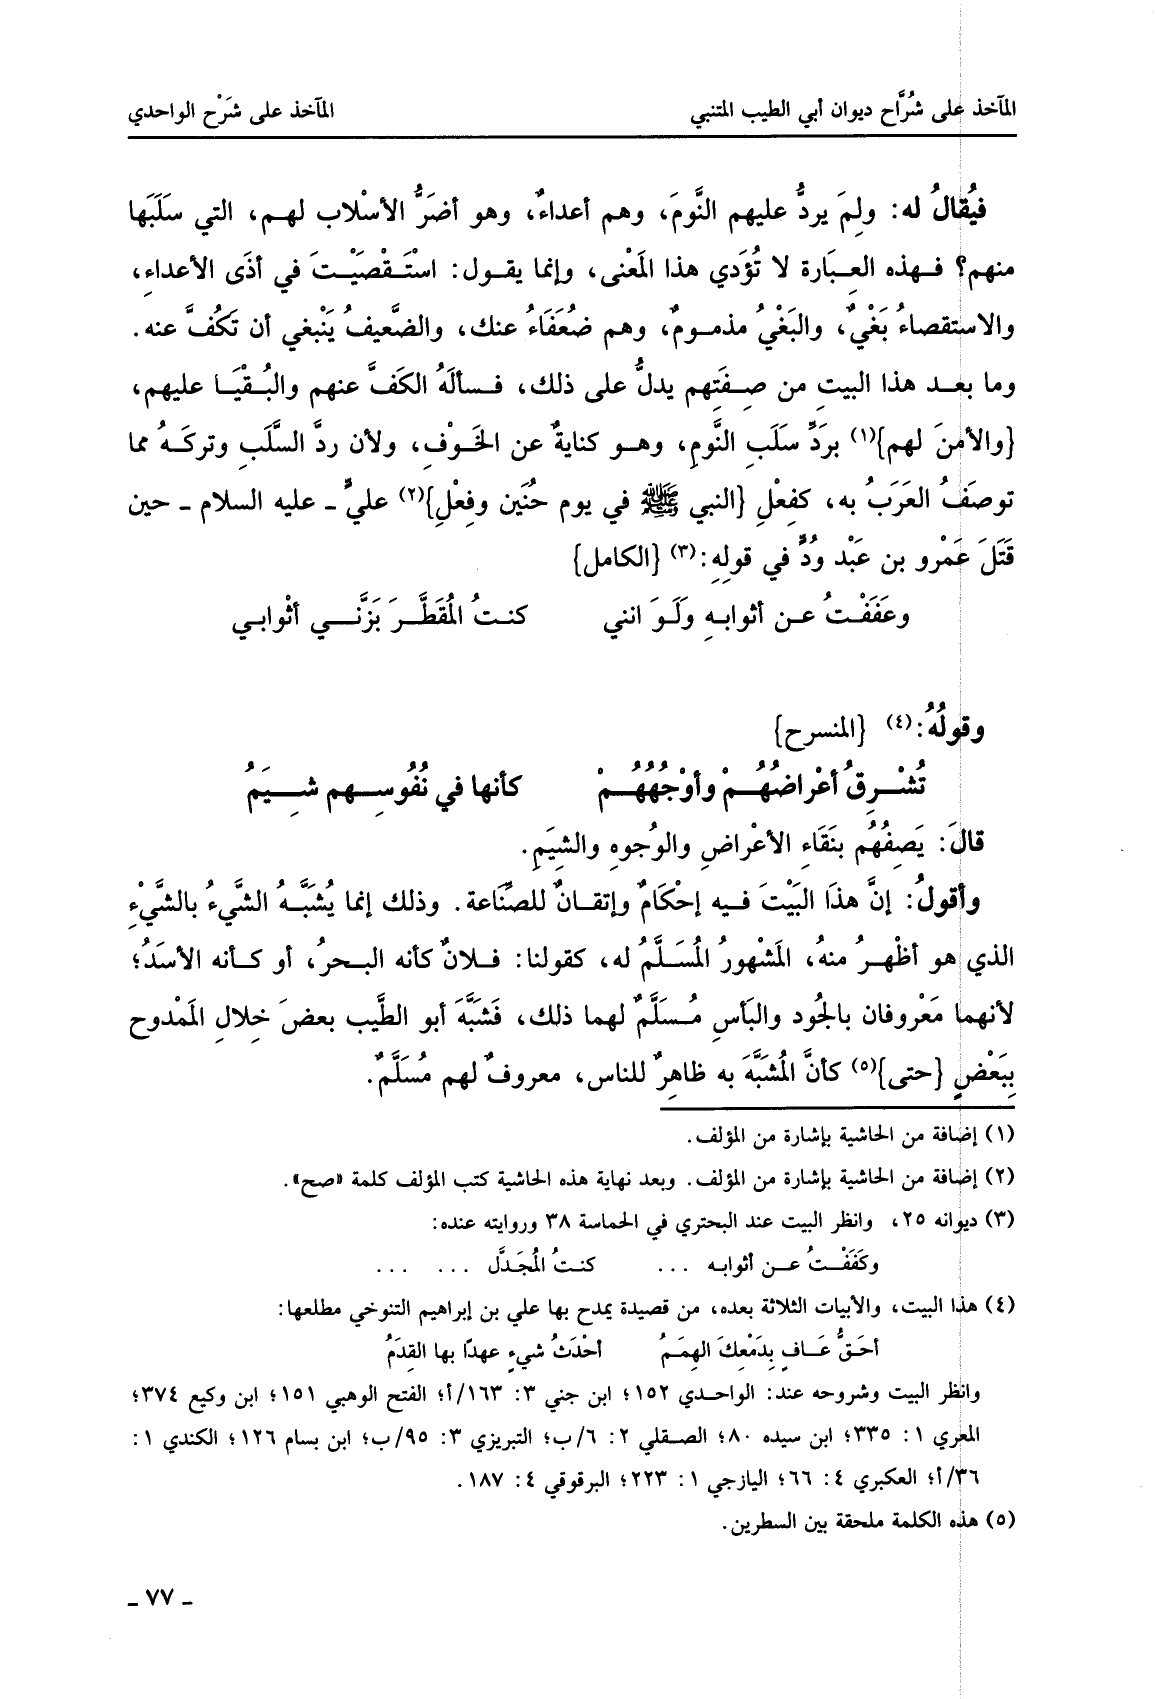 المآخذ على شُرَّاح ديوان أبي الطيب المتنبي المآخذ على شَرْح الواحدي
فيُقالُ له: ولِمَ يردُّ عليهم النَّومَ، وهم أعداءٌ، وهو أضَرُّ الأسْلاب لهم، التي سَلَبَها
منهم؟ فهذه العِبَارة لا تُؤَدي هذا المَعْنى، وإنما يقول: اسْتَقْصَيْتَ في أذَى الأعداءِ،
والاستقصاءُ بَغْيٌ، والبَغْيُ مذمومٌ، وهم ضُعَفَاءُ عنك، والضَّعيفُ يَنْبغي أن تَكُفَّ عنه.
وما بعد هذا البيتِ من صِفَتِهم يدلُّ على ذلك، فسألَهُ الكَفَّ عنهم والبُقْيَا عليهم،
{والأمنَ لهم}(١) برَدِّ سَلَبِ النَّومِ، وهو كنايةٌ عن الخَوْفِ، ولأن ردَّ السَّلَبِ وتركَهُ مما
توصَفُ العَرَبُ به، كفِعْلِ {النبي ﷺ في يوم حُنَين وفِعْلِ}(٢) عليٍّ ـ عليه السلام ـ حين
قَتَلَ عَمْرو بن عَبْد وُدٍّ في قولِهِ:(٣) {الكامل}
وعَفَفْتُ عن أثوابِهِ وَلَوَ انني كنتُ المُقَطَّرَ بَزَّنِي أثْوابي
وقولُهُ:(٤) {المنسرح}
تُشْرِقُ أعْراضُهُمْ وأوْجُهُهُمْ كأنها في نُفُوسِهم شِيَمُ
قالَ: يَصِفُهُم بنَقَاءِ الأعْراضِ والوُجوهِ والشِيَمِ.
وأقولُ: إنَّ هذَا البَيْتَ فيه إحْكامٌ وإتقانٌ للصِّنَاعة. وذلك إنما يُشَبَّهُ الشَّيءُ بالشَّيْءِ
الذي هو أظْهرُ منهُ، المَشْهورُ المُسَلَّمُ له، كقولنا: فلانٌ كأنه البحرُ، أو كأنه الأسَدُ؛
لأنهما مَعْروفان بالجُود والبَأسِ مُسَلَّمٌ لهما ذلك، فَشبَّهَ أبو الطَّيب بعضَ خِلالِ المَمْدوح
بِبَعْضٍ {حتى}(٥) كأنَّ المُشَبَّهَ به ظاهِرٌ للناس، معروفٌ لهم مُسَلَّمٌ.
(١) إضافة من الحاشية بإشارة من المؤلف.
(٢) إضافة من الحاشية بإشارة من المؤلف. وبعد نهاية هذه الحاشية كتب المؤلف كلمة «صح».
(٣) ديوانه ٢٥، وانظر البيت عند البحتري في الحماسة ٣٨ وروايته عنده:
وكَفَفْتُ عن أثوابه ... كنتُ المُجَدَّل ... ...
(٤) هذا البيت، والأبيات الثلاثة بعده، من قصيدة يمدح بها علي بن إبراهيم التنوخي مطلعها:
أحَقُّ عَافٍ بِدَمْعِكَ الهِمَمُ أحْدَثُ شيءٍ عهدًا بها القِدَمُ
وانظر البيت وشروحه عند: الواحدي ١٥٢؛ ابن جني ٣: ١٦٣/أ؛ الفتح الوهبي ١٥١؛ ابن وكيع ٣٧٤؛
المعري ١: ٣٣٥؛ ابن سيده ٨٠؛ الصقلي ٢: ٦/ب؛ التبريزي ٣: ٩٥/ب؛ ابن بسام ١٢٦؛ الكندي ١:
٣٦/أ؛ العكبري ٤: ٦٦؛ اليازجي ١: ٢٢٣؛ البرقوقي ٤: ١٨٧.
(٥) هذه الكلمة ملحقة بين السطرين.
ـ ٧٧ ـ